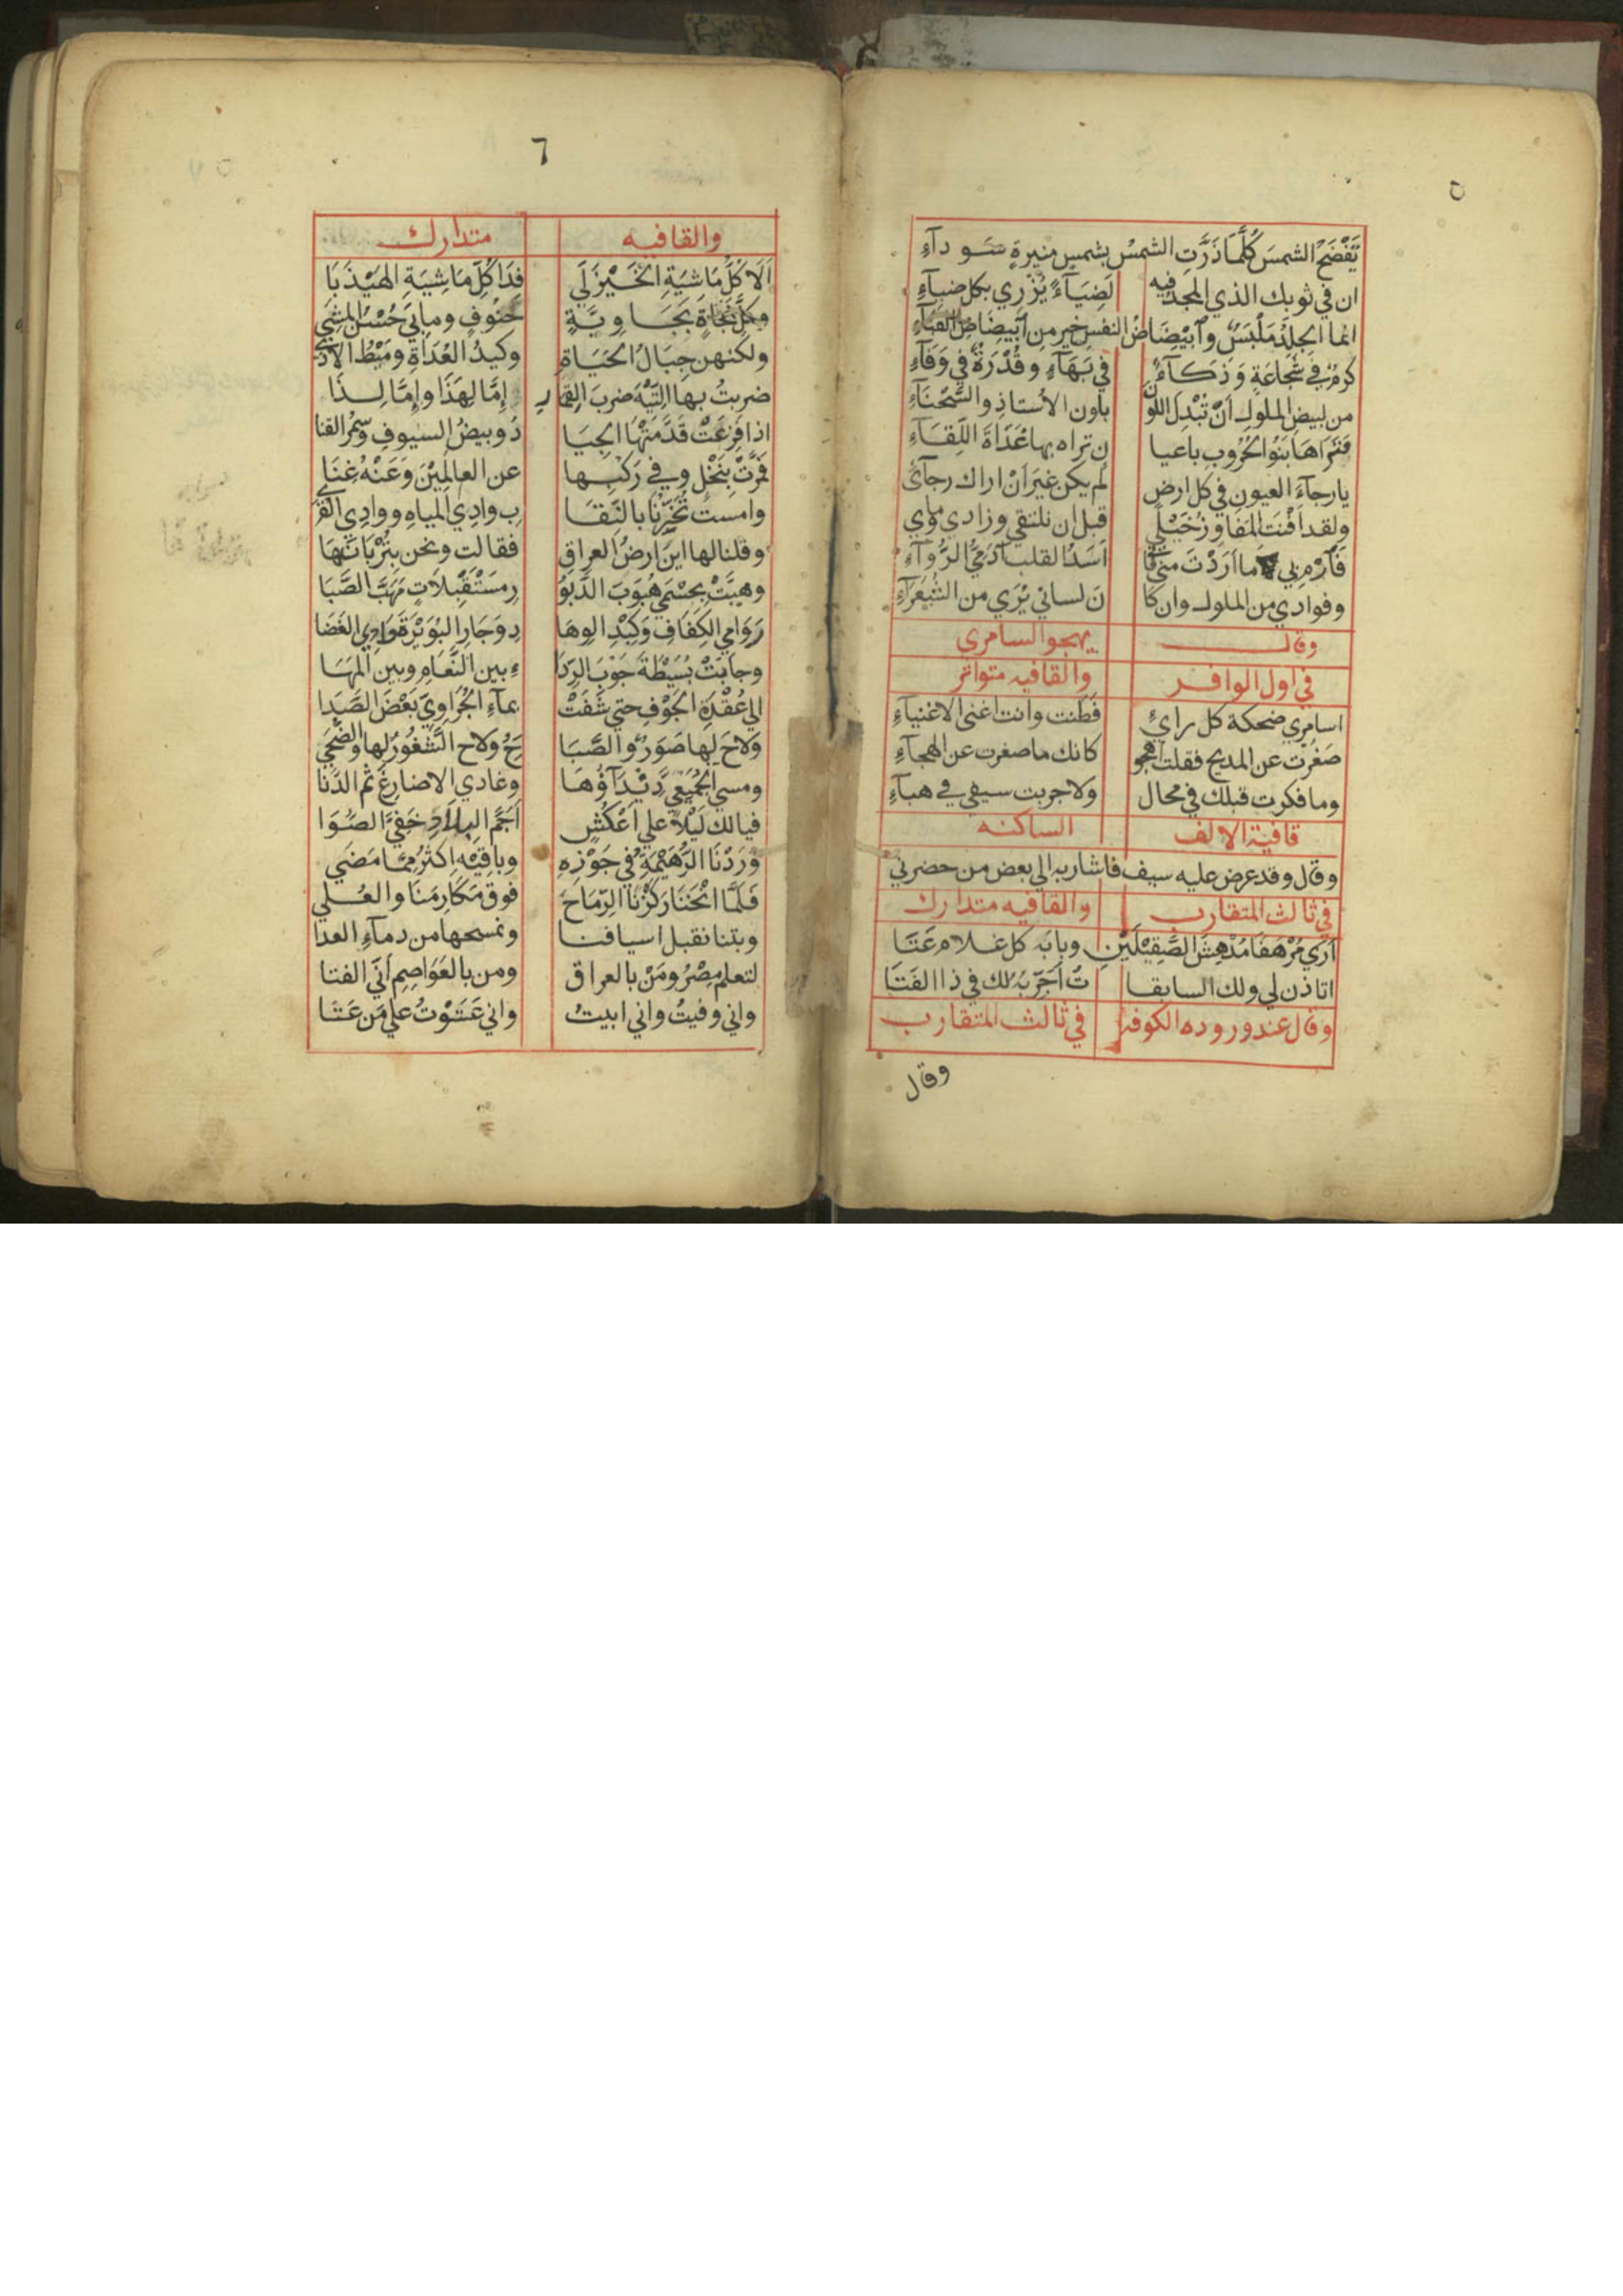 ٥
تَفْضَحُ الشمسَ كُلَّمَا ذَرَّتِ الشمسُ بشمسٍ منيرةٍ سَوداءِ
ان في ثوبك الذي المجد فيه لَضِيَآءً يُزْري بكل ضيآءِ
انما الجلدُ مَلْبَسٌ وآبْيِضَاضُ النفسِ خير من آبيضَاضِ القبآءِ
كرمٌ في شَجاعَةٍ وَذَكَآءٌ في بَهَآءٍ وقُدْرَةٌ في وَفَآءِ
من لبيض الملوك اَنْ تُبْدِلَ اللون بلون الاُستاذِ والسَّحْنَآءِ
فَتَرَاهَا بَنُوا الحُرُوبِ باعيا نٍ تراه بها غَدَاةَ اللِّقَآءِ
يا رجآءَ العيونِ في كل ارض لم يكن غيرَ اَنْ اراك رجآئ
ولقد اَفْنَت المفاوزُ خَيْلي قبل ان نلتقي وزادي ومآي
فَآرْمِ بي ما اَرَدْتَ منّي فا اَسَدُ القلب آدَمِيُّ الرُّوآءِ
وفوادي من الملوك وان كا نَ لساني يُرَي من الشُّعَرَآءِ
وقال يهجو السامري
في اول الوافر والقافيه متواتر
اسامري ضحكة كل رايءٍ فَطَنت وانت اغني الاغنيآءِ
صَغُرْت عن المديح فقلت اهجو كانك ما صغرت عن الهجآءِ
وما فكرت قبلك في محال ولا جربت سيفي في هبآءِ
قافية الالف الساكنه
وقال وقد عرض عليه سيف فاشار به الي بعض من حضر
في ثالث المتقارب والقافيه متدارك
اَرَي مُرْهَفًا مُدْهِشَ الصَّيقِلَيْنِ وبابَة كل غلام عَتَا
اتاذن لي ولك السابقا تُ اُجَرِّبُهُ لك في ذا الفَتَا
وقال عند وروده الكوفة في ثالث المتقارب
وقال
٦
والقافيه متدارك
اَلَا كُلُّ مَاشِيَةِ الخَيْزَلَي فِدَا كُلِّ مَاشِيَةِ الهَيْذَبَا
وكل نجاةٍ بَجَاوِيَّةٍ خَنُوفٍ وما بي حُسْنُ المِشَي
ولكنهن حِبَالُ الحَيَاةِ وكيدُ العُدَاةِ ومَيْطُ الاَذَي
ضربتُ بها التِّيْهَ ضربَ القِمَا رِ إمَّا لِهَذَا وإمَّا لِذَا
اذا فَزِعَتْ قَدَّمَتْهَا الجِيَا دُ وبيضُ السيوفِ وسُمْرُ القنا
فَمَرَّتْ بِنَخْلٍ وفي رَكْبِها عن العالمِيْنَ وَعَنْهُ غِنَا
وامست تُخَيِّرُنَا بالنِّقَا بِ وادِي المياهِ ووادِي القُرَي
وقلنا لها اينَ ارضُ العراقِ فقالت ونحن بِتُرْبَانَ هَا
وهبَّتْ بِحِسْمَي هُبُوبَ الدَّبُو رِ مستَقْبِلاَتٍ مَهَبَّ الصَّبَا
رَوَامي الكِفَافِ وَكِبْدِ الوِهَا دِ وَجَارِ البُوَيْرَةِ وادِي الغَضَا
وجابَتْ بُسَيْطَةَ جَوْبَ الرِّدَا ءِ بين النَّعَامِ وبين المَهَا
الي عُقْدَةِ الجَوْفِ حتي شَفَتْ بمآءِ الجُرَاوِيِّ بَعْضَ الصَّدَا
ولاحَ لها صَوَرٌ والصَّبَا حَ ولاح الشَّغُورُ لها والضُّحَي
ومسي الجُمَيْعِيَّ دِئْدَآؤُهَا وغادي الاضارعَ ثم الدَّنا
فيالك لَيْلاً علي اَعْكُشٍ اَحَمَّ البلاَدِ خَفِيَّ الصُّوَا
وَرَدْنَا الرُّهَيْمَةَ في جَوْزِهِ وباقيْهِ اكثرُ مِمَّا مَضَي
فَلَمَّا انَخْنَا رَكَزْنَا الرِّمَاحَ فوق مَكَارِمَنَا والعُلي
وبتنا نقبل اسيافنا ونمسحها من دمآءِ العدا
لتعلم مِصْرُ ومَنْ بالعراق ومن بالعَوَاصِمِ اَنِّي الفتا
واني وفيتُ واني ابيتُ واني عَتَوْتُ علي مَن عَتَا